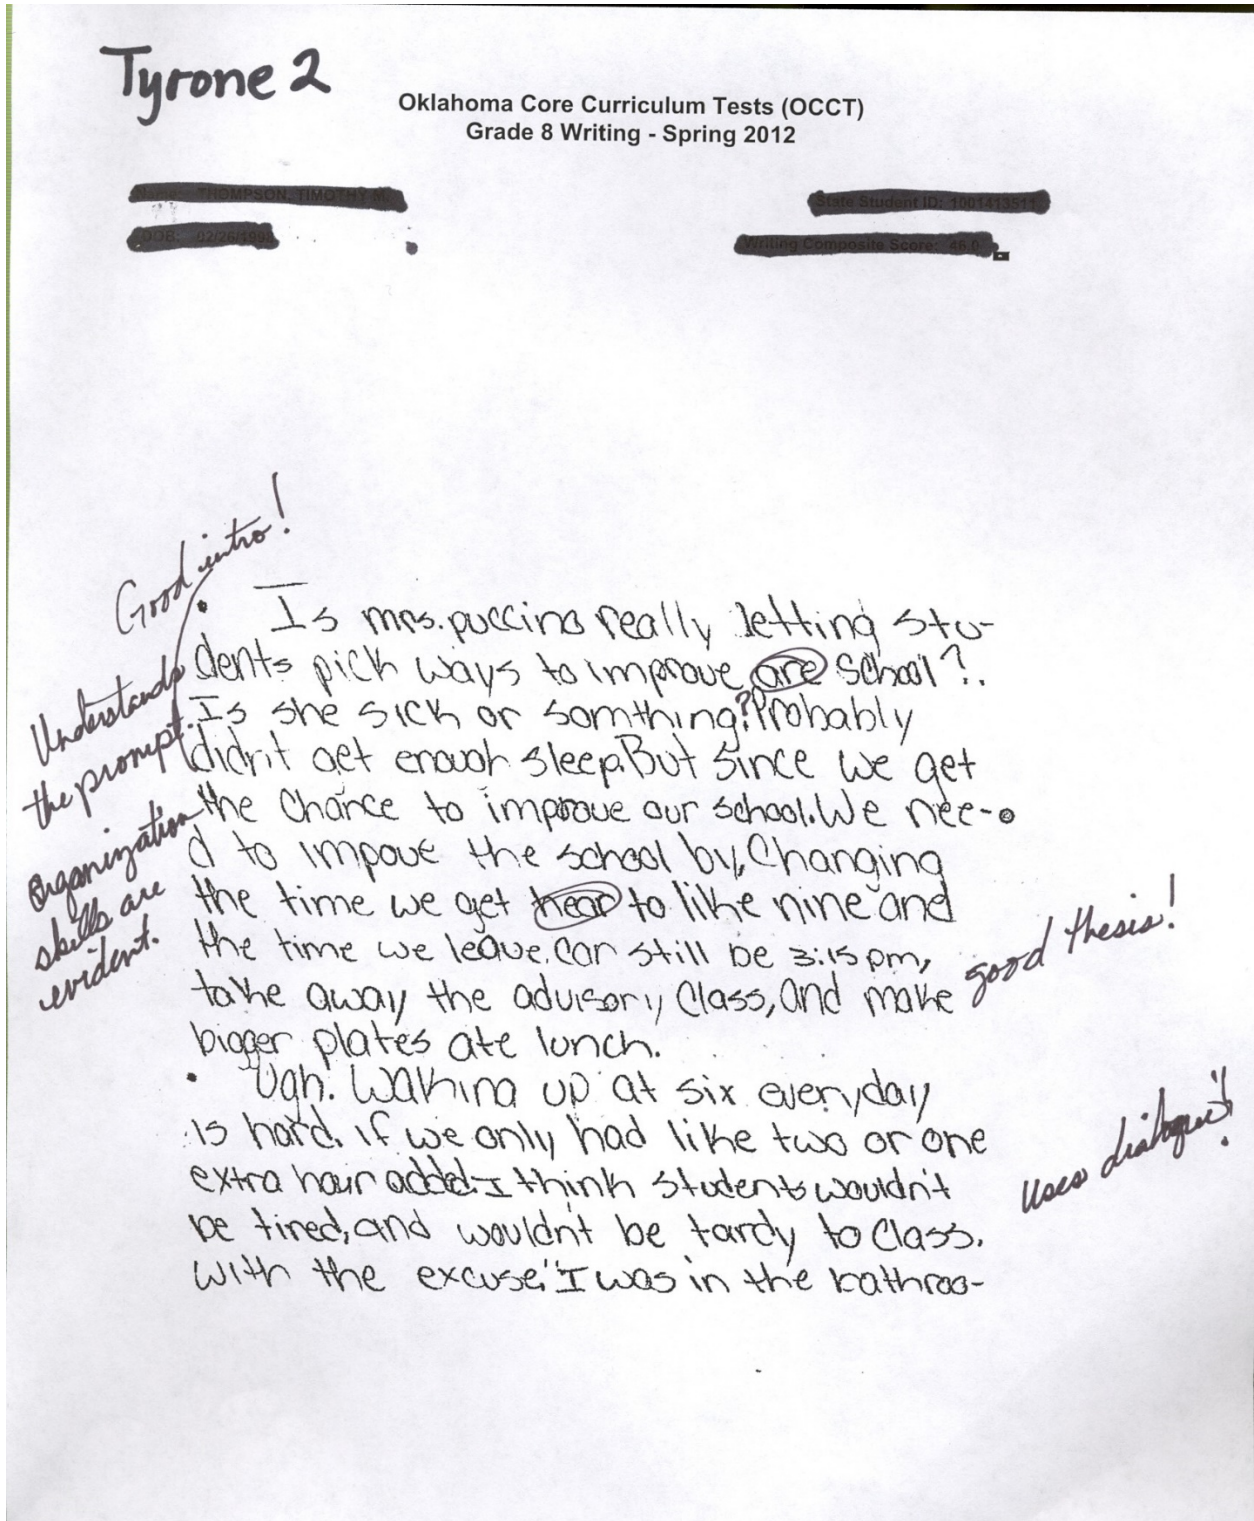 Tyrone 2
Oklahoma Core Curriculum Tests (OCCT)
Grade 8 Writing - Spring 2012
Good intro!
Understands
the prompt.
Organization
skills are
evident.
Is mrs. puccino really letting stu-
dents pick ways to improve are school?.
Is she sick or somthing? Probably
didn't get enough sleep. But since we get
the chance to improve our school. We nee-
d to impove the school by, Changing
the time we get hear to like nine and
the time we leave. can still be 3:15 pm,
take away the advisory class, and make
bigger plates ate lunch.
good thesis!
Ugh. Waking up at six everyday
is hard. if we only had like two or one
extra hour added. I think students wouldn't
be tired, and wouldn't be tardy to class.
with the excuse, "I was in the bathroo-
Uses dialogue!